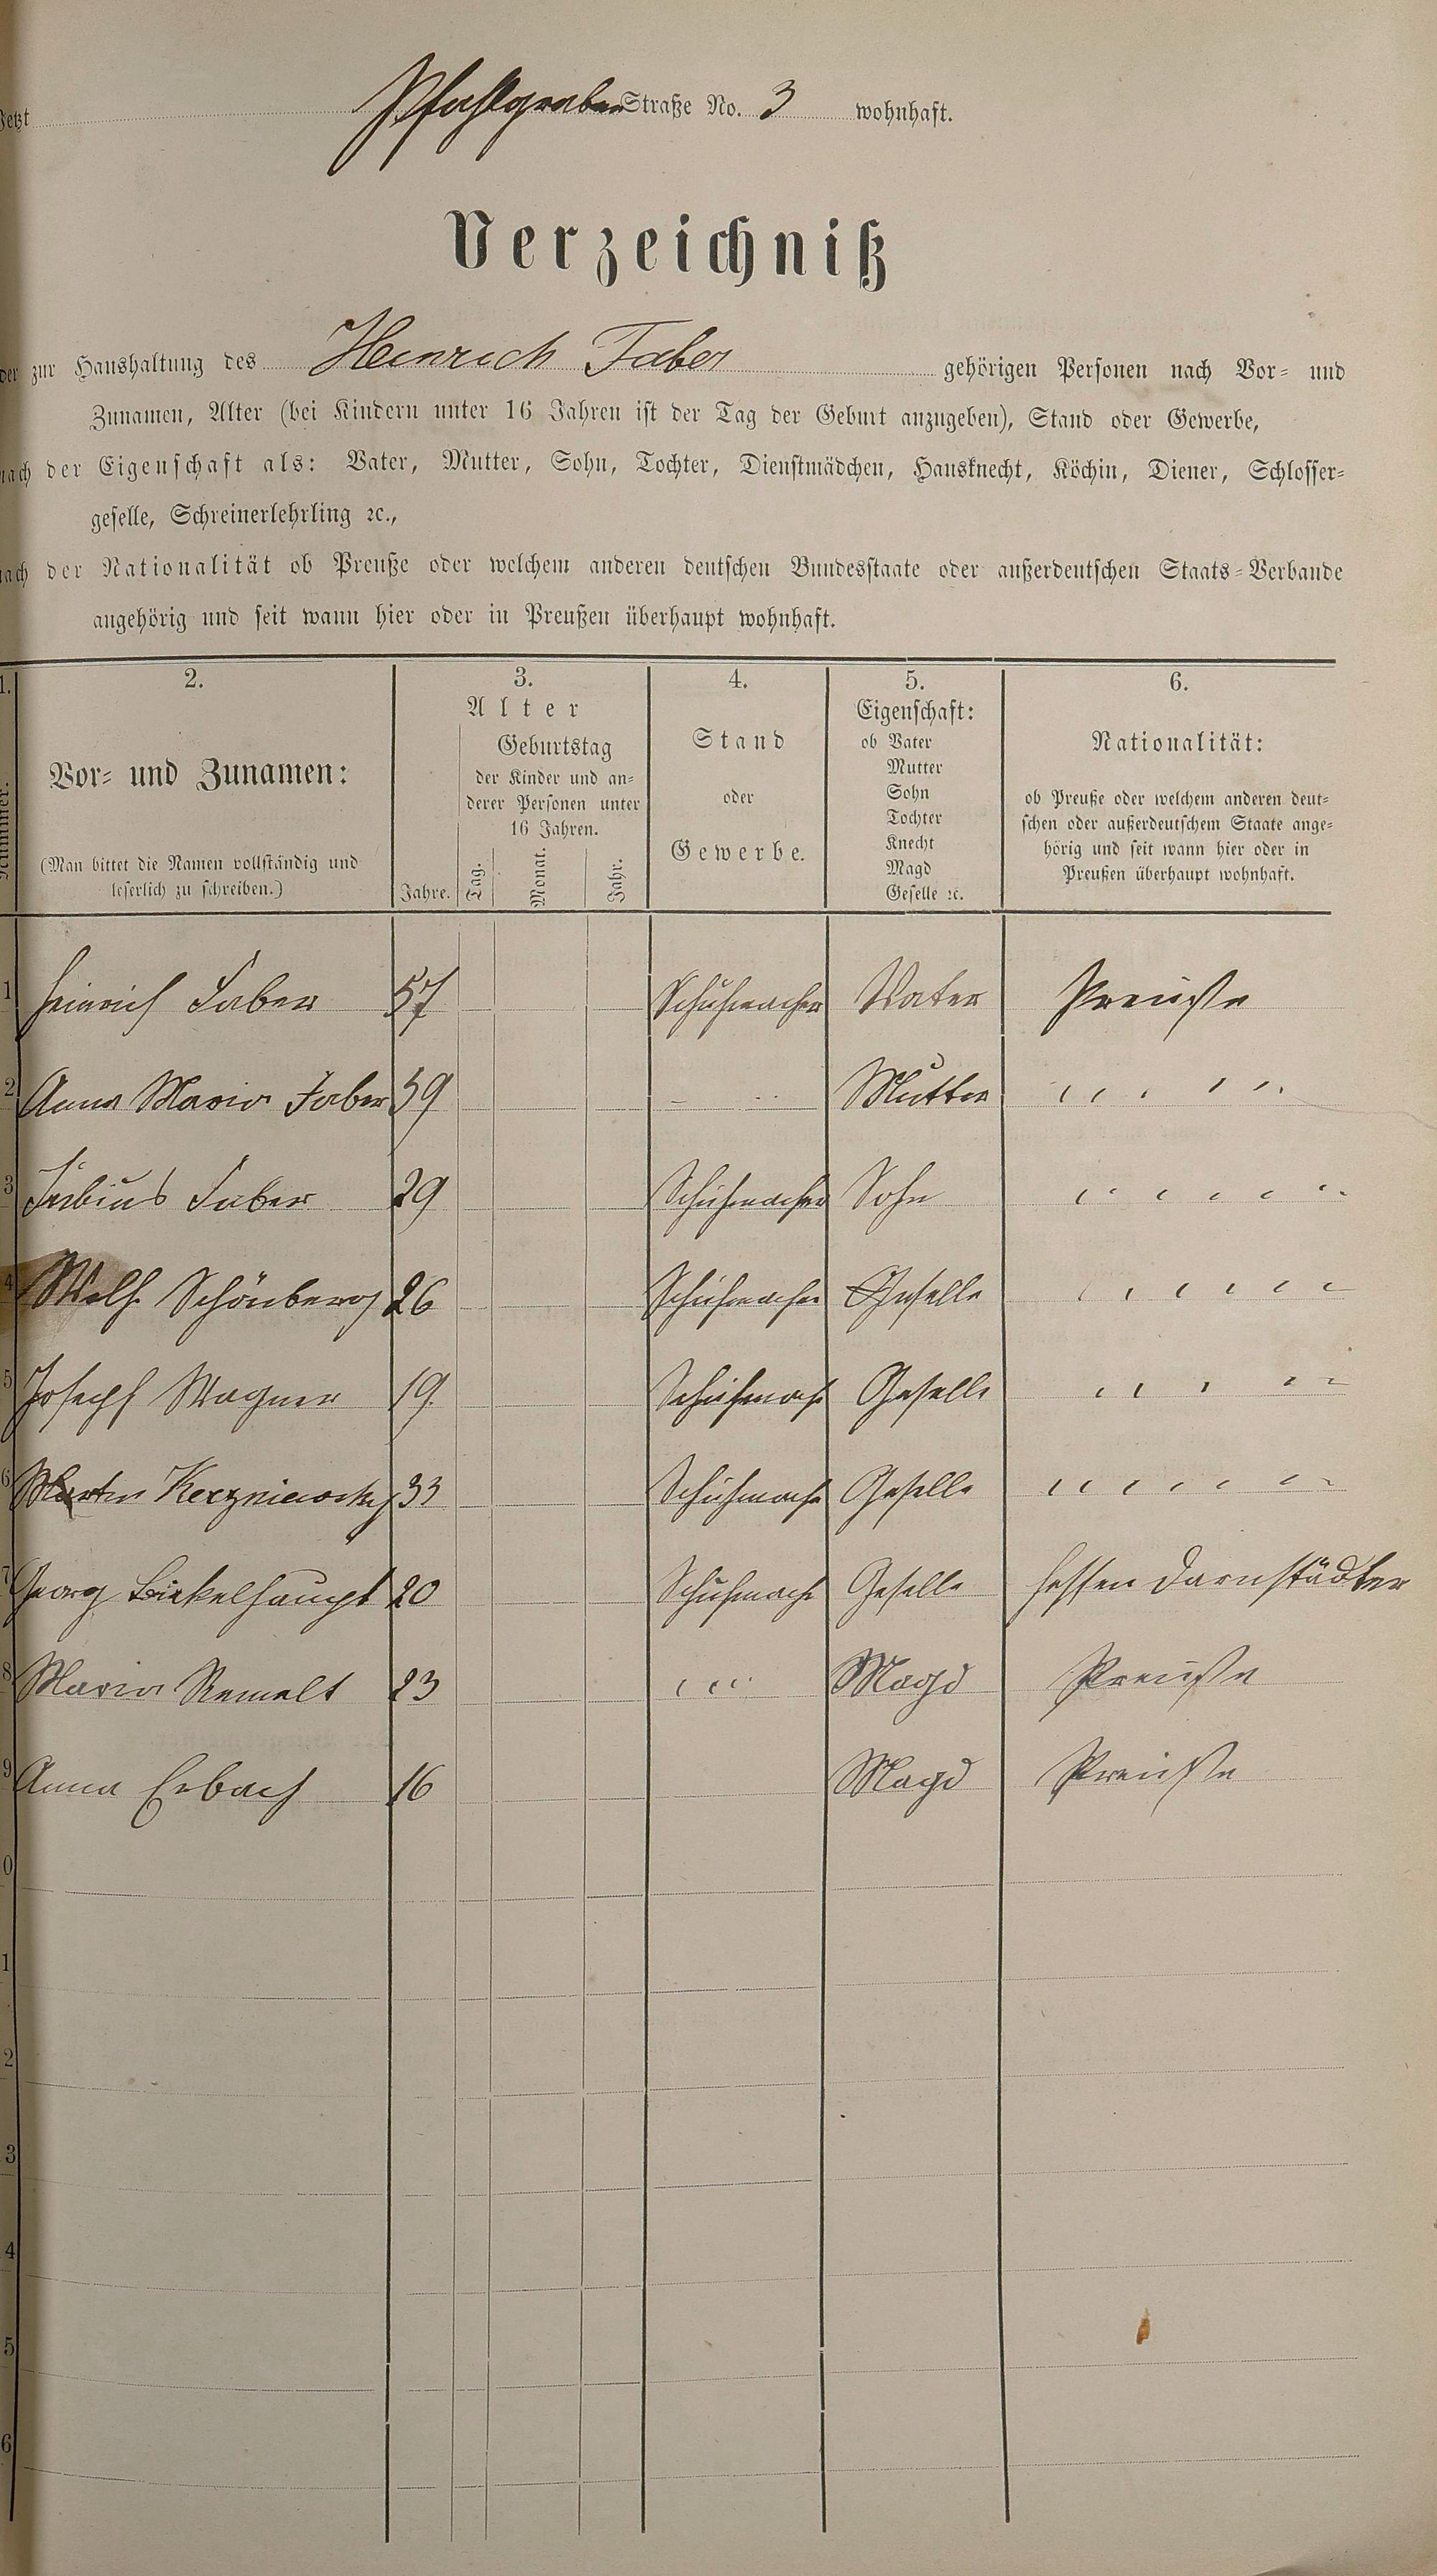 Jetzt Pfahlgraben Straße No. 3 wohnhaft.
Verzeichniß
der zur Haushaltung des Heinrich Faber gehörigen Personen nach Vor- und
Zunamen, Alter (bei Kindern unter 16 Jahren ist der Tag der Geburt anzugeben), Stand oder Gewerbe,
nach der Eigenschaft als: Vater, Mutter, Sohn, Tochter, Dienstmädchen, Hausknecht, Köchin, Diener, Schlosser-
geselle, Schreinerlehrling ꝛc.,
nach der Nationalität ob Preuße oder welchem anderen deutschen Bundesstaate oder außerdeutschen Staats-Verbande
angehörig und seit wann hier oder in Preußen überhaupt wohnhaft.
1.
Nummer.
2.
Vor- und Zunamen:
(Man bittet die Namen vollständig und
leserlich zu schreiben.)
3.
Alter
Jahre.
Geburtstag
der Kinder und an-
derer Personen unter
16 Jahren.
Tag. Monat. Jahr.
4.
Stand
oder
Gewerbe.
5.
Eigenschaft:
ob Vater
Mutter
Sohn
Tochter
Knecht
Magd
Geselle ꝛc.
6.
Nationalität:
ob Preuße oder welchem anderen deut-
schen oder außerdeutschem Staate ange-
hörig und seit wann hier oder in
Preußen überhaupt wohnhaft.
1 Heinrich Faber 57 Schuhmacher Vater Preuße
2 Anna Maria Faber 59 - Mutter " " " " "
3 Faber 29 Schuhmacher Sohn " " " " "
4 Wilh. Schönberg 26 Schuhmacher Geselle " " " " "
5 Joseph Wagner 19. Schuhmach Geselle " " " " "
6 Martin 33 Schuhmach Geselle " " " " "
7 Georg Bickelhaupt 20 Schuhmach Geselle Hessen Darmstädter
8 Maria Remelt 23 " " Magd Preuße
9 Anna Erbach 16 Magd Preuße
0
1
2
3
4
5
6